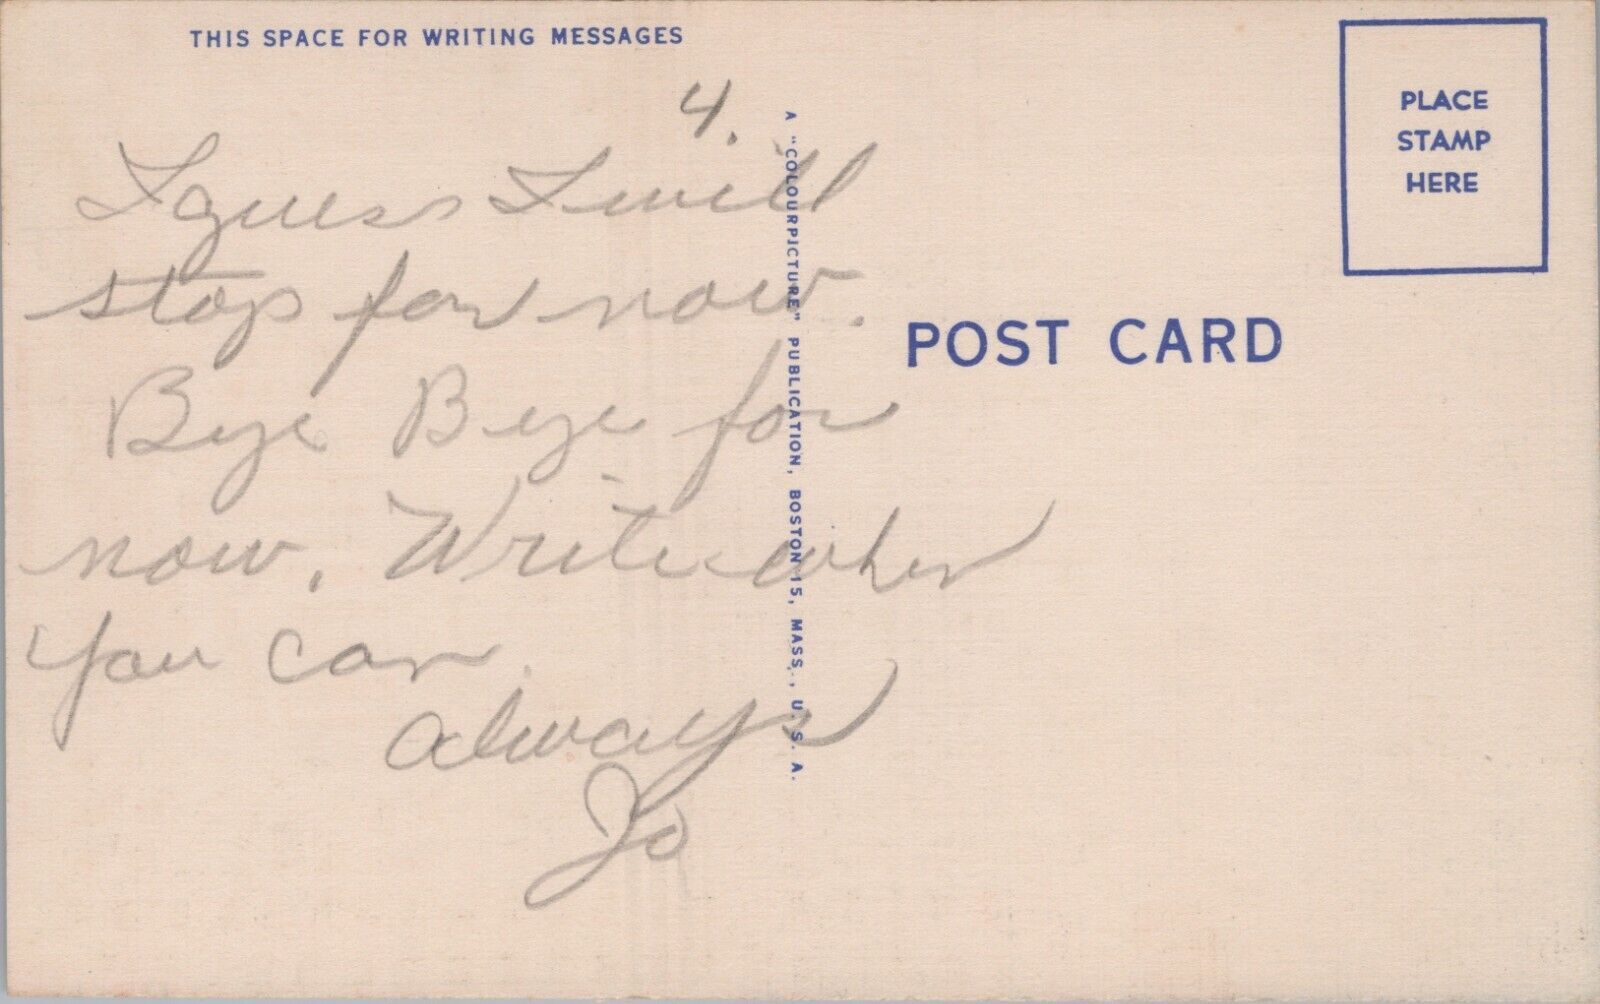 THIS SPACE FOR WRITING MESSAGES
4.
I guess I will
stop for now.
Bye Bye for
now. Write when
you can.
always
Jo
A "COLOURPICTURE" PUBLICATION, BOSTON 15, MASS., U. S. A.
PLACE
STAMP
HERE
POST CARD